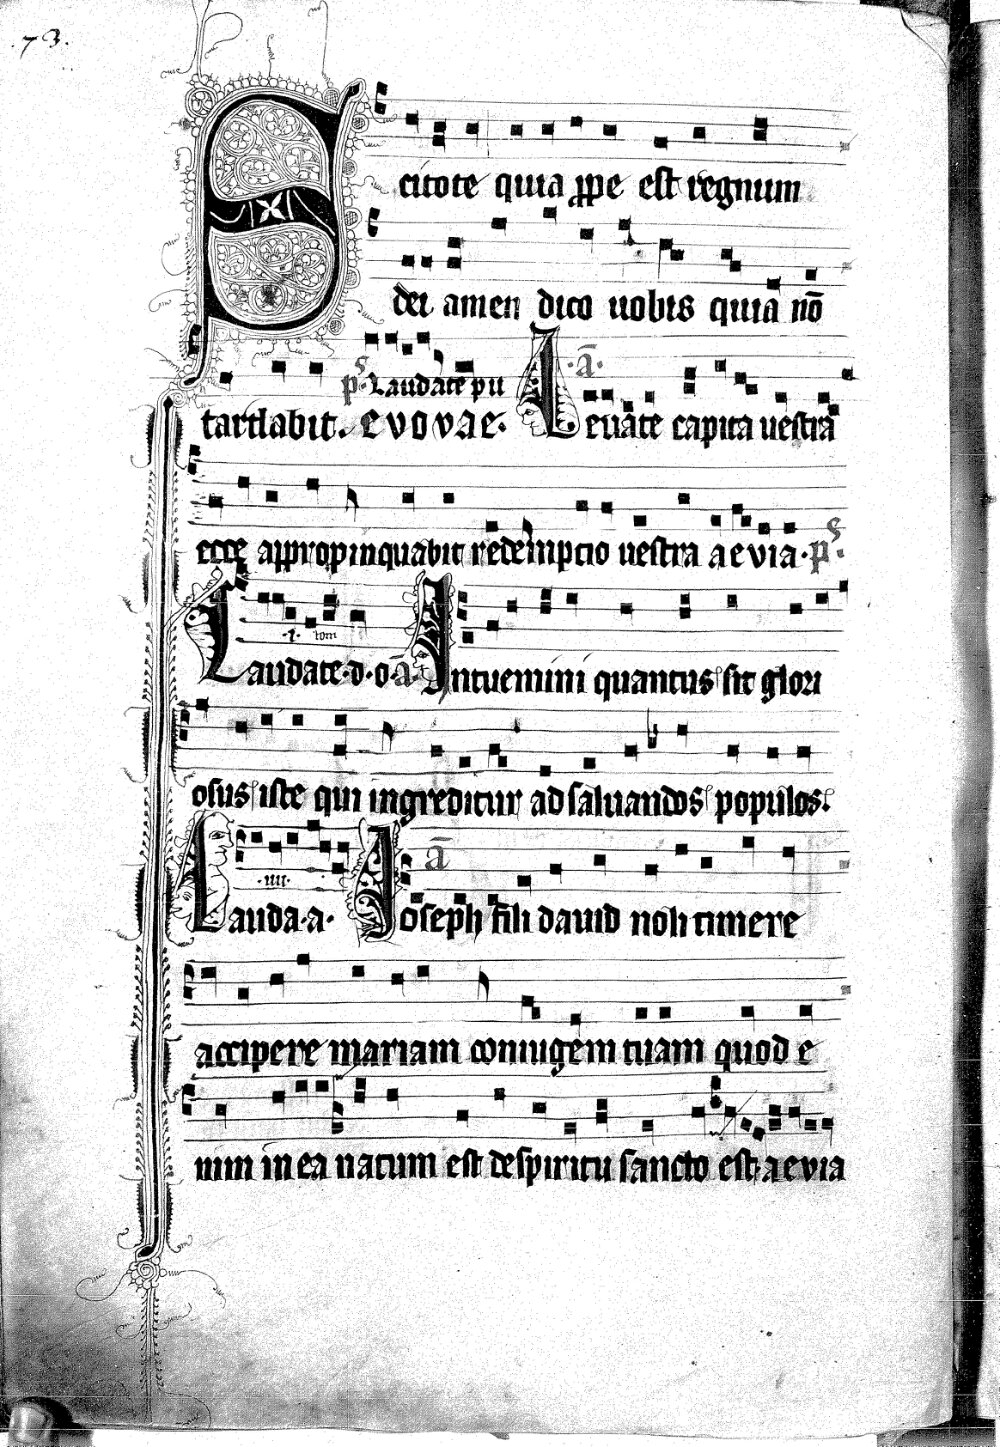 .73.
Scitote quia ꝓpe est regnum
dei amen dico uobis quia nō
tardabit. evovae. ps. Laudate pu Leuate ā. capita uestra
ecce appropinquabit redemptio uestra aevia. ps.
Laudate. d. o. ā. .i. tom Intuemini quantus sit glori
osus iste qui ingreditur ad saluandos populos.
Lauda. a. .iiii. ā Ioseph fili dauid noli timere
accipere mariam coniugem tuam quod e
nim in ea natum est de spiritu sancto est. aevia